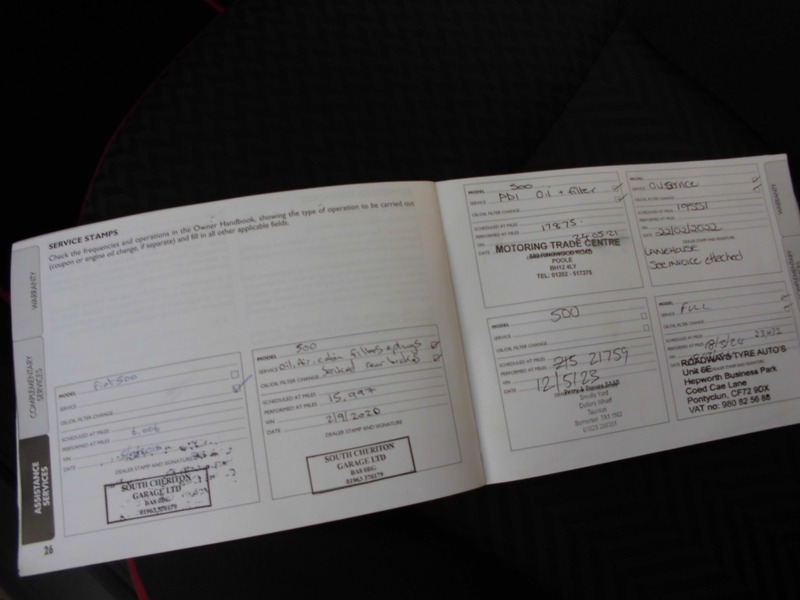 SERVICE STAMPS
Check the frequencies and operations in the Owner Handbook, showing the type of operation to be carried out
(coupon or engine oil change, if separate) and fill in all other applicable fields.
WARRANTY
COMPLEMENTARY
SERVICES
ASSISTANCE
SERVICES
26
MODEL Fiat 500
SERVICE
OIL/OIL FILTER CHANGE
SCHEDULED AT MILES
PERFORMED AT MILES
VIN
DATE
DEALER STAMP AND SIGNATURE
SOUTH CHERITON
GARAGE LTD
BA8 0BG
01963 370179
MODEL 500
SERVICE Oil, air, cabin filters & plugs
OIL/OIL FILTER CHANGE Serviced rear brakes
SCHEDULED AT MILES
PERFORMED AT MILES 15,997
VIN
DATE 2/9/2020
DEALER STAMP AND SIGNATURE
SOUTH CHERITON
GARAGE LTD
BA8 0BG
01963 370179
MODEL 500
SERVICE PDI Oil + filter
OIL/OIL FILTER CHANGE
SCHEDULED AT MILES
PERFORMED AT MILES 17875
VIN
DATE 24.05.21
MOTORING TRADE CENTRE
POOLE
BH12 4LY
TEL: 01202 - 517375
MODEL
SERVICE
OIL/OIL FILTER CHANGE
SCHEDULED AT MILES 19551
PERFORMED AT MILES
VIN
DATE 22/02/2022
DEALER STAMP AND SIGNATURE
See invoice attached
MODEL 500
SERVICE
OIL/OIL FILTER CHANGE
SCHEDULED AT MILES
PERFORMED AT MILES 21759
VIN
DATE 12/5/23
Taunton
MODEL
SERVICE FULL
OIL/OIL FILTER CHANGE
SCHEDULED AT MILES
PERFORMED AT MILES
VIN
DATE
ROADWAYS TYRE AUTO'S
Unit 6E
Hepworth Business Park
Coed Cae Lane
Pontyclun, CF72 9DX
VAT no: 980 82 56 88
WARRANTY